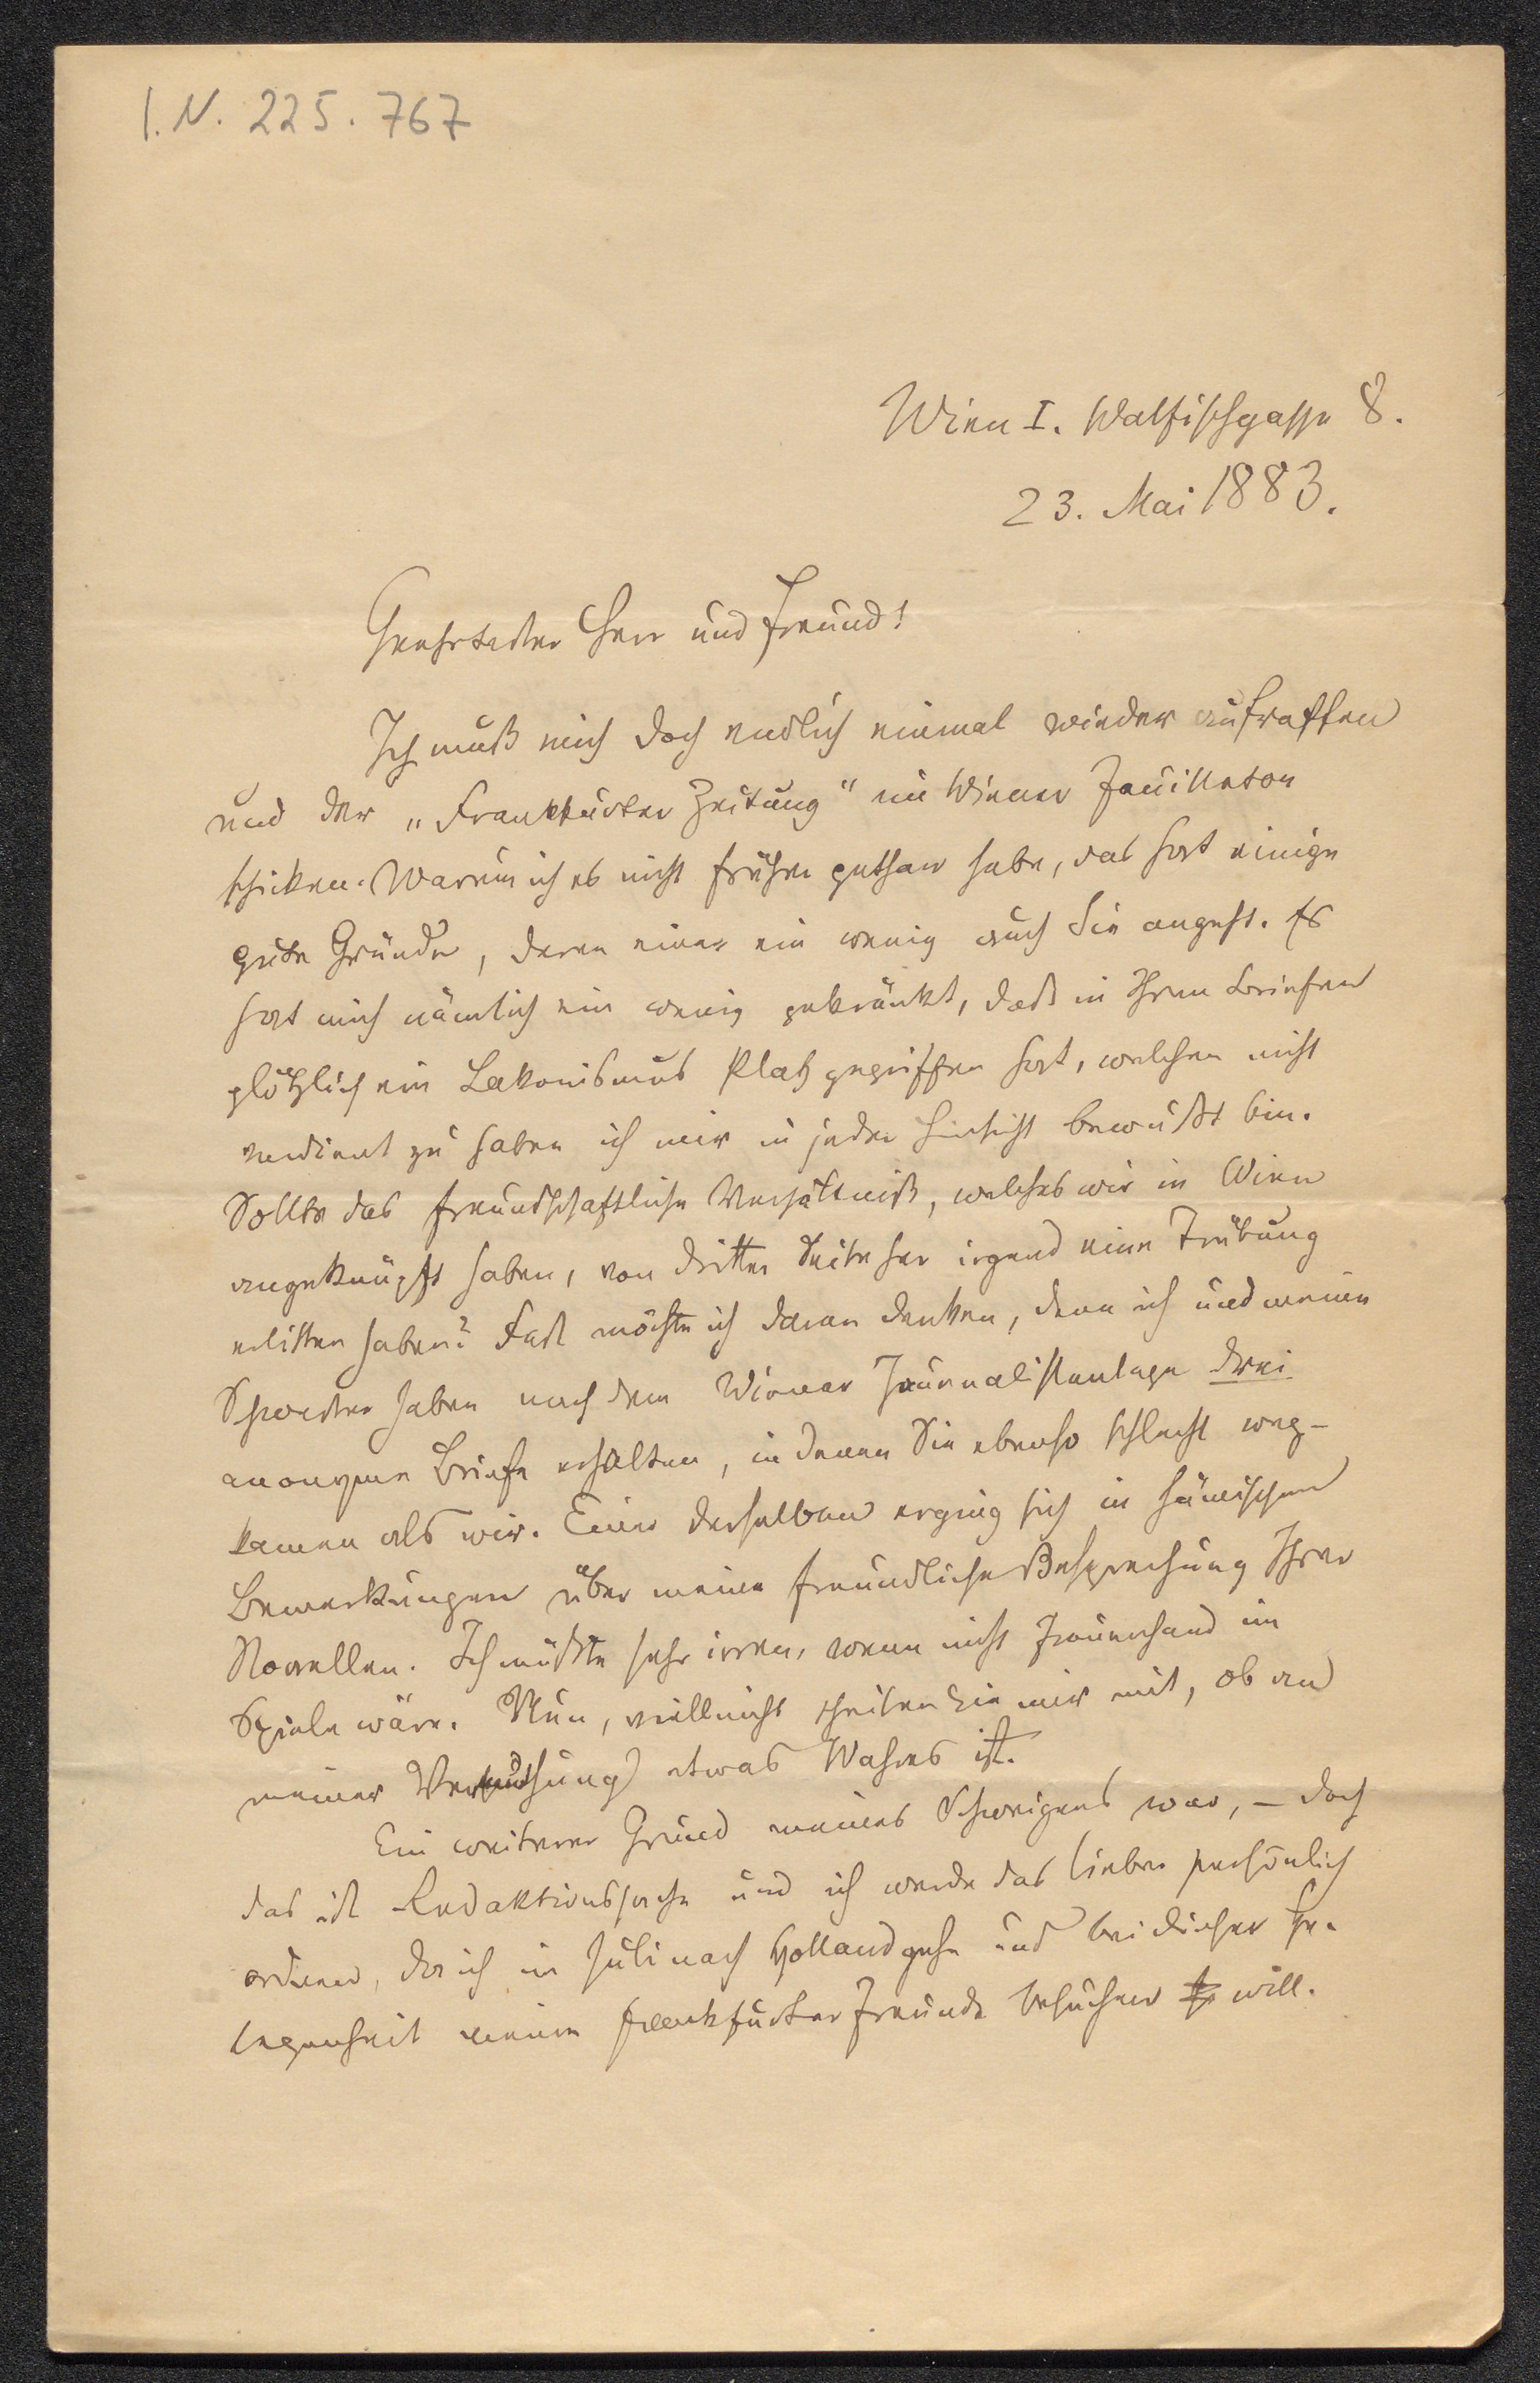 I.N. 225.767
Wien I. Walfischgasse 8.
23. Mai 1883.
Geehrtester Herr und Freund!
Ich muß mich doch endlich einmal wieder aufraffen
und der „Frankfurter Zeitung" ein Wiener Feuilleton
schicken. Warum ich es nicht früher gethan habe, das hat einige
gute Gründe, deren einer ein wenig auch Sie angeht. Es
hat mich nämlich ein wenig gekränkt, daß in Ihren Briefen
plötzlich ein Lakonismus Platz gegriffen hat, welchen nicht
verdient zu haben ich mir in jeder Hinsicht bewußt bin.
Sollte das freundschaftliche Verhältniß, welches wir in Wien
angeknüpft haben, von dritter Seite her irgend eine Trübung
erlitten haben? Fast möchte ich daran denken, denn ich und meine
Schwester haben nach dem Wiener Journalistentage drei
anonyme Briefe erhalten, in denen Sie ebenso schlecht weg-
kamen als wir. Einer derselben erging sich in hämischen
Bemerkungen über meine freundliche Besprechung Ihrer
Novellen. Ich müßte sehr irren, wenn nicht Frauenhand im
Spiele wäre. Nun, vielleicht theilen Sie mir mit, ob an
meiner Vermuthung etwas Wahres ist.
Ein weiterer Grund meines Schweigens war, – doch
das ist Redaktionssache und ich werde das lieber persönlich
ordnen, da ich im Juli nach Holland gehe und bei dieser Ge-
legenheit meine Frankfurter Freunde besuchen will.